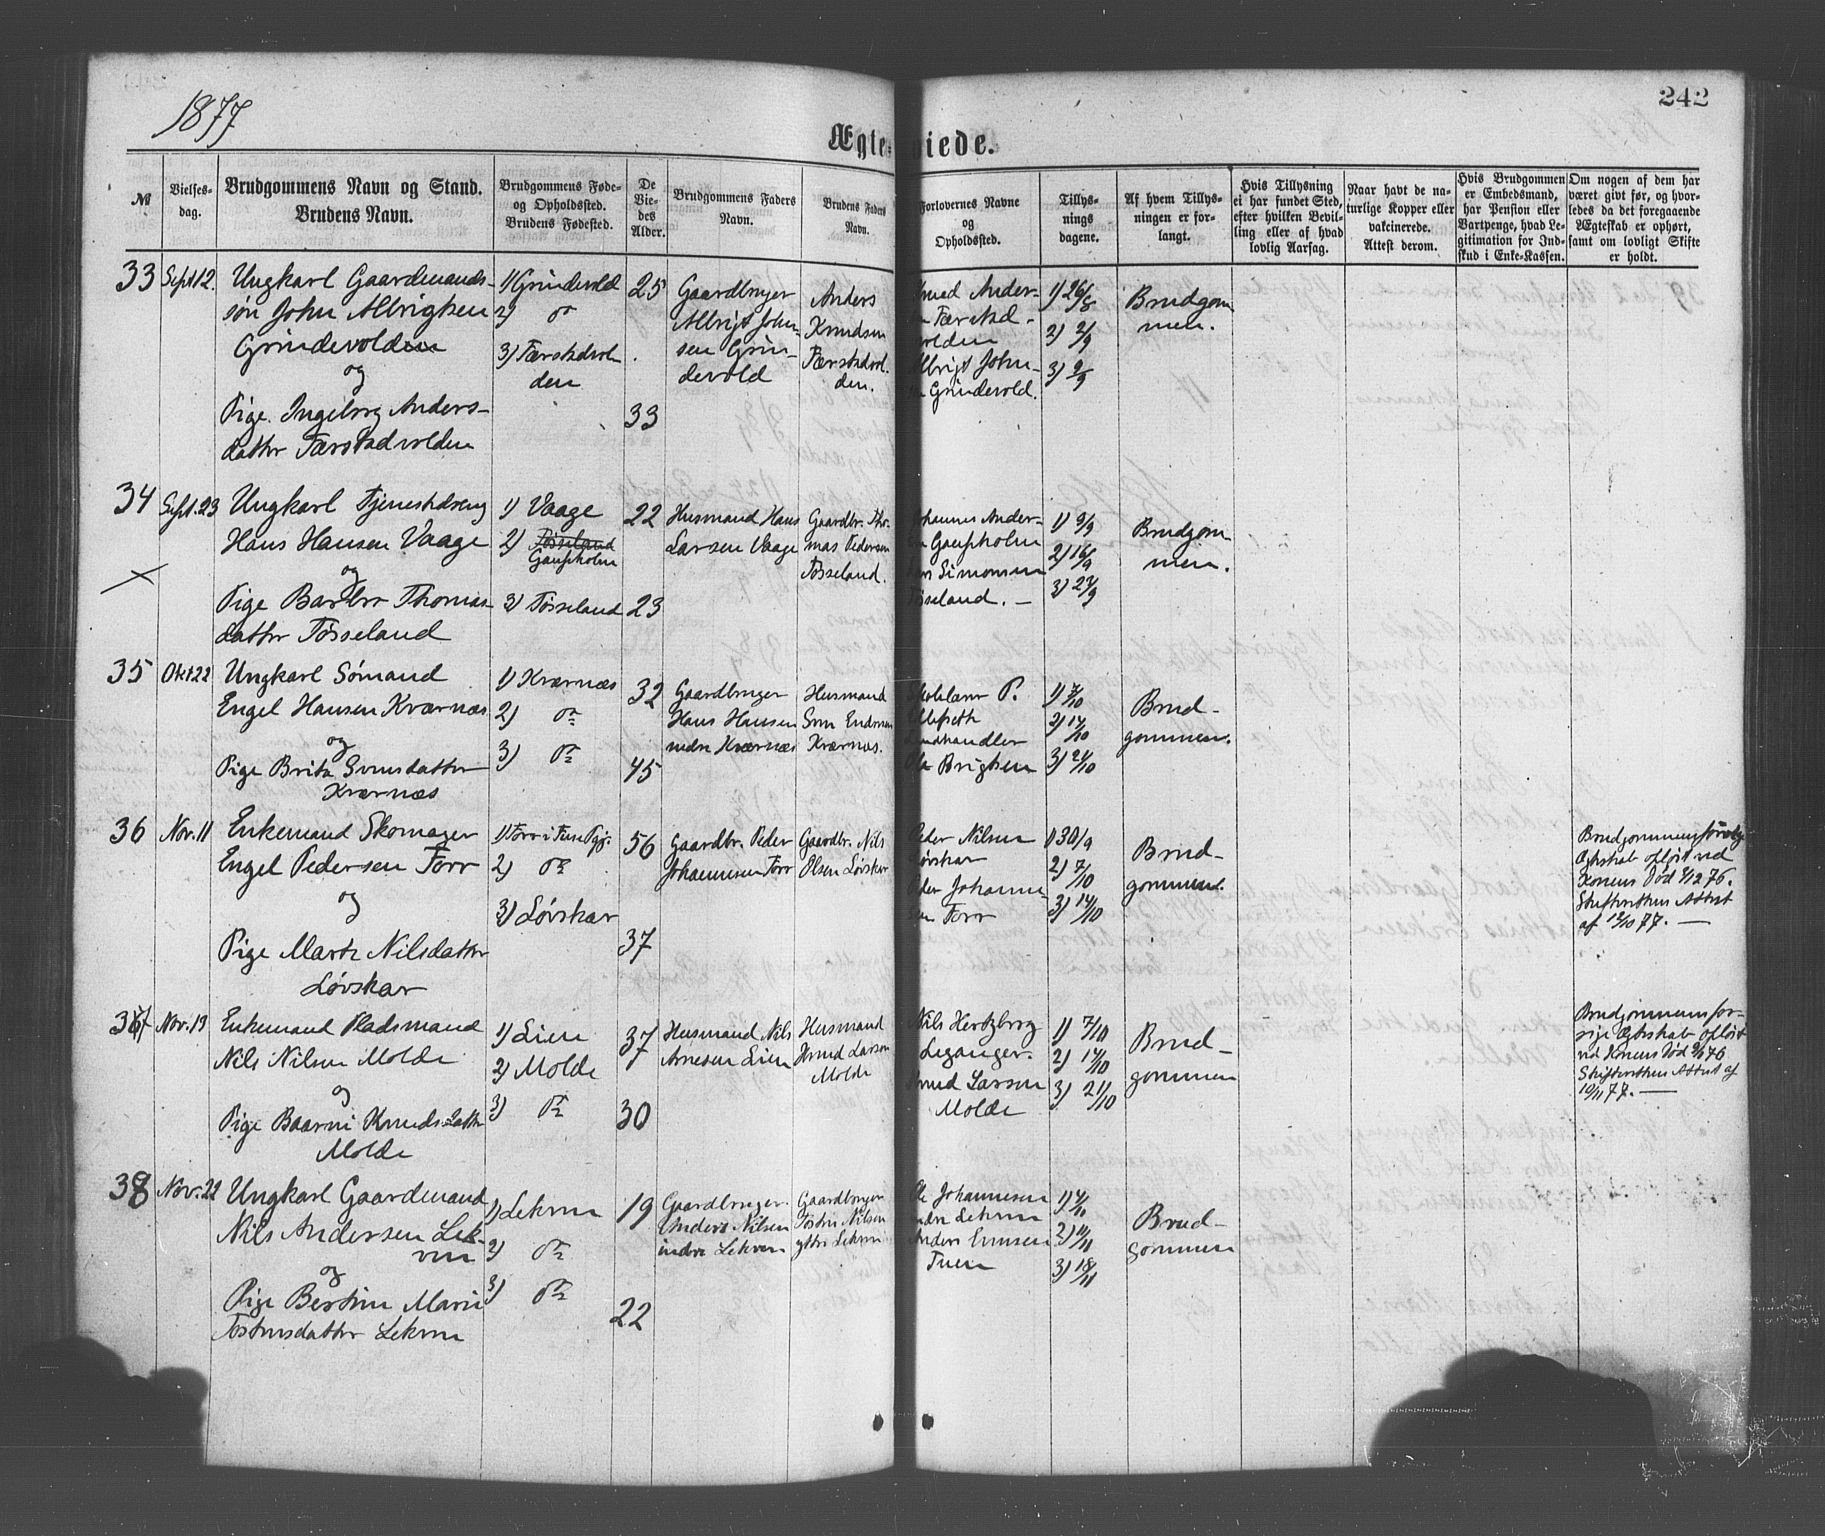 1877
242
Ægte- viede.
№
Vielses-
dag.
Brudgommens Navn og Stand.
Brudens Navn.
Brudgommens Føde-
og Opholdsted.
Brudens Fødested.
De
Vie-
des
Alder.
Brudgommens Faders
Navn.
Brudens Faders
Navn.
Forlovernes Navne
og
Opholdsted.
Tillys-
nings
dagene.
Af hvem Tillys-
ningen er for-
langt.
Hvis Tillysning
ei har fundet Sted,
efter hvilken Bevil-
ling eller af hvad
lovlig Aarsag.
Naar havt de na-
turlige Kopper eller
vakcinerede.
Attest derom.
Hvis Brudgommen
er Embedsmand,
har Pension eller
Vartpenge, hvad Le-
gitimation for Ind-
skud i Enke-Kassen.
Om nogen af dem har
været givt før, og hvor-
ledes da det foregaaende
Ægteskab er ophørt,
samt om lovligt Skifte
er holdt.
33
Sept 12.
Ungkarl Gaardmands-
søn John Albrigtsen
Grindevolden
og
Pige. Ingeborg Anders-
datter Færstadvolden
1) Grindevold
2) do
3) Færstadvol-
den
25
33
Gaardbruger
Albrigt John-
sen Grin-
devold
Anders
Knudsen
Færstadvol-
den.
Knud Ander-
Færstad-
volden
Albrigt John-
Grindevold.
1) 26/8
2) 2/9
3) 9/9
Brudgom
men.
34
Sept. 23
Ungkarl Tjenestedreng
Hans Hansen Vaage
og
Pige Barbro Thomas-
datter Tösseland
1) Vaage
2) Tösseland
Gaupholm
3) Tösseland
22
23
Husmand Hans
Larsen Vaage
Gaardbr. Tho-
mas Pedersen
Tösseland.
Johannes Ander-
Gaupholm
Simonsen
Tösseland. –
1) 9/9
2) 16/9
3) 23/9
Brudgom
men.
35
Okt 22
Ungkarl Sömand
Engel Hansen Kværnæs
og
Pige Brita Svensdatter
Kværnæs
1) Kværnæs
2) do
3) do
32
45
Gaardbruger
Hans Hansen
nedre Kværnæs
Husmand
Sven Endresen
Kværnæs.
P.
Landhandler
Ole Brigtsen
1) 7/10
2) 14/10
3) 21/10
Brud-
gommen.
36
Nov. 11
Enkemand Skomager
Engel Pedersen Torr
og
Pige Marta Nilsdatter
Lövskar
1) Torr i Fuse Pgj.
2) do
3) Lövskar
56
37
Gaardbr. Peder
Johannesen Torr
Gaardbr. Nils
Olsen Lövskar
Peder Nilsen
Lövskar
Peder Johanne-
sen Torr
1) 30/9
2) 7/10
3) 14/10
Brud-
gommen.
Brudgommens forrige
Ægteskab oplöst ved
Konens Död 76.
Skifterettens Attest
af 12/10 77. —
37
Nov. 13
Enkemand Pladsmand
Nils Nilsen Molde
og
Pige Baarni Knudsdatter
Molde
1) Lien
2) Molde
3) do
37
30
Husmand Nils
Arnesen Lien
Husmand
Knud Larsen
Molde
Nils Hertzberg
Leganger.
Knud Larsen
Molde
1) 7/10
2) 14/10
3) 21/10
Brud-
gommen
Brudgommens for-
rige Ægteskab oplöst
ved Konens Död 76
Skifterettens Attest af
10/11 77. —
38
Nov. 22
Ungkarl Gaardmand
Nils Andersen Lek-
ven
og
Pige Bertine Marie
Tostensdatter Lekven
1) Lekven
2) do
3) do
19
22
Gaardbruger
Anders Nilsen
indre Lekven
Gaardbruger
Tosten Nilsen
yttre Lekven
Ole Johannesen
indre Lekven
Anders
Tuen
1) 4/11
2) 11/11
3) 18/11
Brud-
gommen